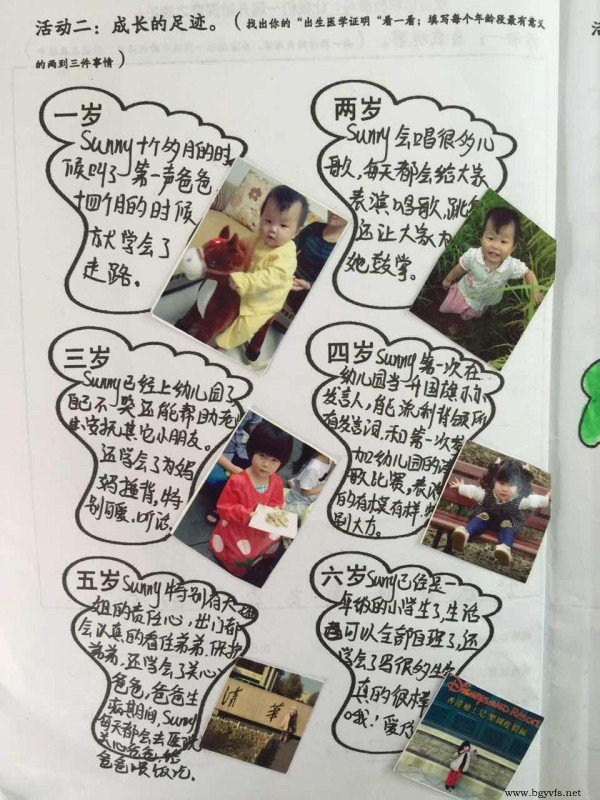 活动二：成长的足迹。（找出你的“出生医学证明“看一看；填写每个年龄段最有意义
的两到三件事情）
一岁
Sunny十个多月的时
候叫了第一声爸爸
十四个月的时候
就学会了
走路。
两岁
Sunny会唱很多儿
歌,每天都会给大家
表演唱歌,跳
还让大家
她鼓掌。
三岁
Sunny已经上幼儿园了
自己不哭还能帮助老
安抚其它小朋友。
还学会了为妈
妈捶背。特
别可爱、听话
四岁
Sunny第一次在
幼儿园当升国旗小小
发言人,能流利背颂所
有发言词,和第一次参
加幼儿园的
歌比赛。表演
的有模有样。
别大方。
五岁
Sunny特别有大姐
姐的责任心,出门都
会认真的看住弟弟,保护
弟弟,还学会了关心
爸爸,爸爸生
病期间,Sunny
每天都会去医院
关心爸爸,给
爸爸喂饭吃.
清华
六岁
Sunny已经是一
年级的小学生了,生活
可以全部自理了,还
学会了写很多生字
真的很棒
哦!爱你
DISNEYLAND RESORT
香港迪士尼乐园度假区
www.bgyvfs.net